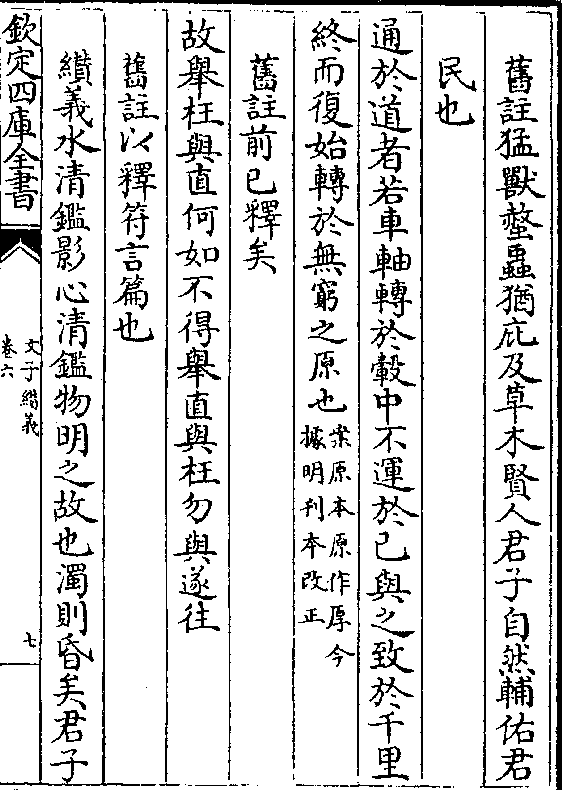 舊註猛獸螫蟲猶庇及草木賢人君子自然輔佑君
民也
通於道者若車軸轉於轂中不運於己與之致於千里
終而復始轉於無窮之原也案原本原作厚今
據明刊本改正
舊註前已釋矣
故舉枉與直何如不得舉直與枉勿與遂往
舊註以釋符言篇也
纉義水清鑑影心清鑑物明之故也濁則昏矣君子
欽定四庫全書
文子纉義
卷六
七